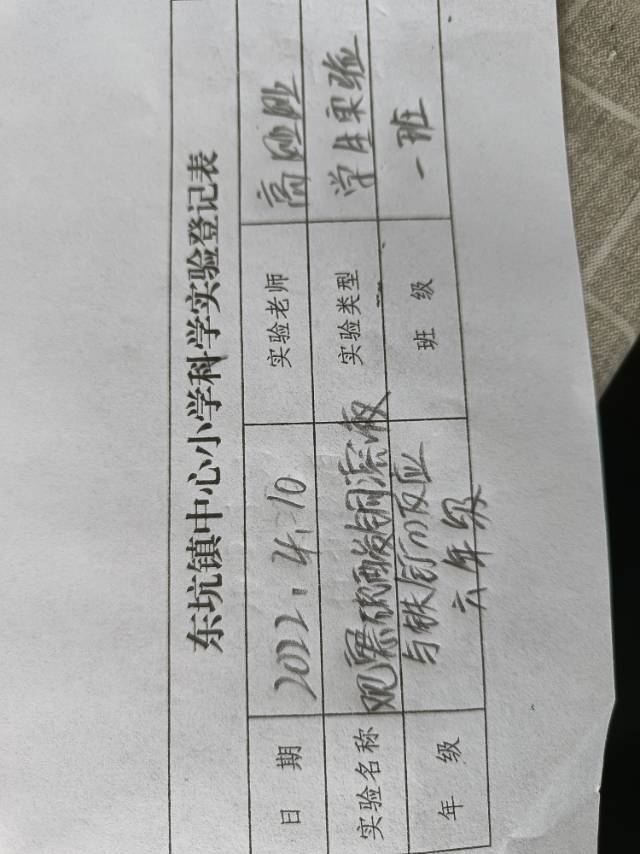 东坑镇中心小学科学实验登记表
日 期 2022.4.10 实验老师 高
实验名称 观察硫酸铜溶液 实验类型 学生实验
与铁钉的反应
年 级 六年级 班 级 一班